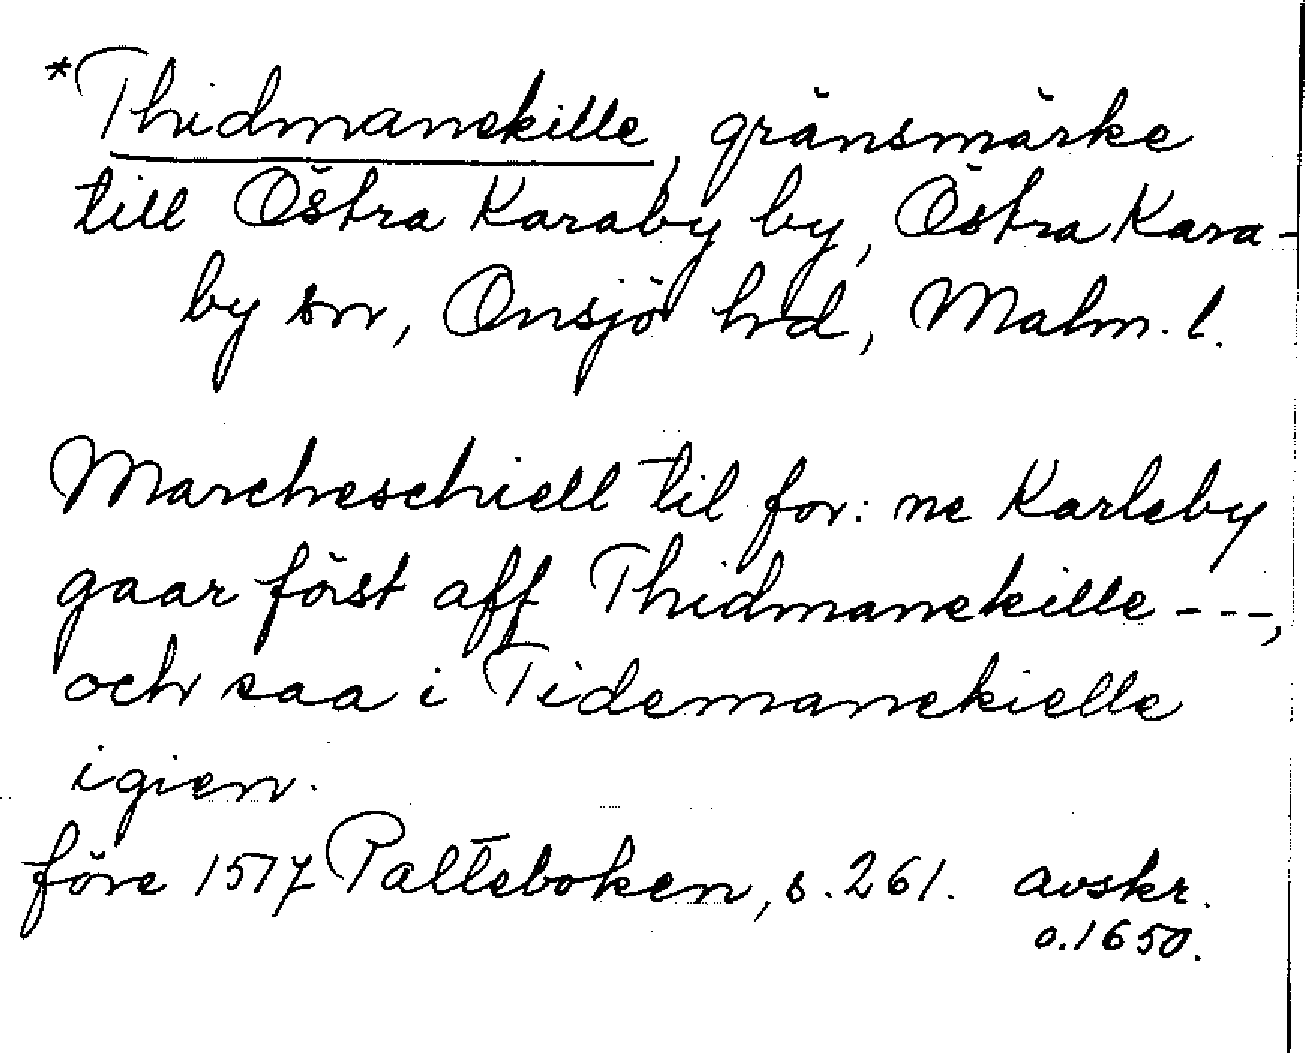 *Thidmanekille, gränsmärke
till Östra Karaby by, Östra Kara-
by sn, Onsjö hd, Malm. l.
Marcheschiell til for: ne Karleby
gaar föst aff Thidmanekille ---,
och saa i Tidemanekielle
igien.
före 1517 Palteboken, s. 261. avskr.
o. 1650.